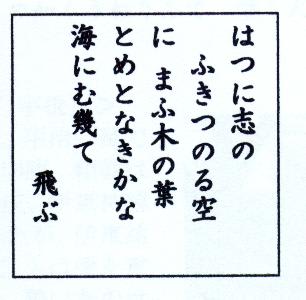 はつに志の
ふきつのる空
に まふ木の葉
とめとなきかな
海にむ幾て
飛ぶ